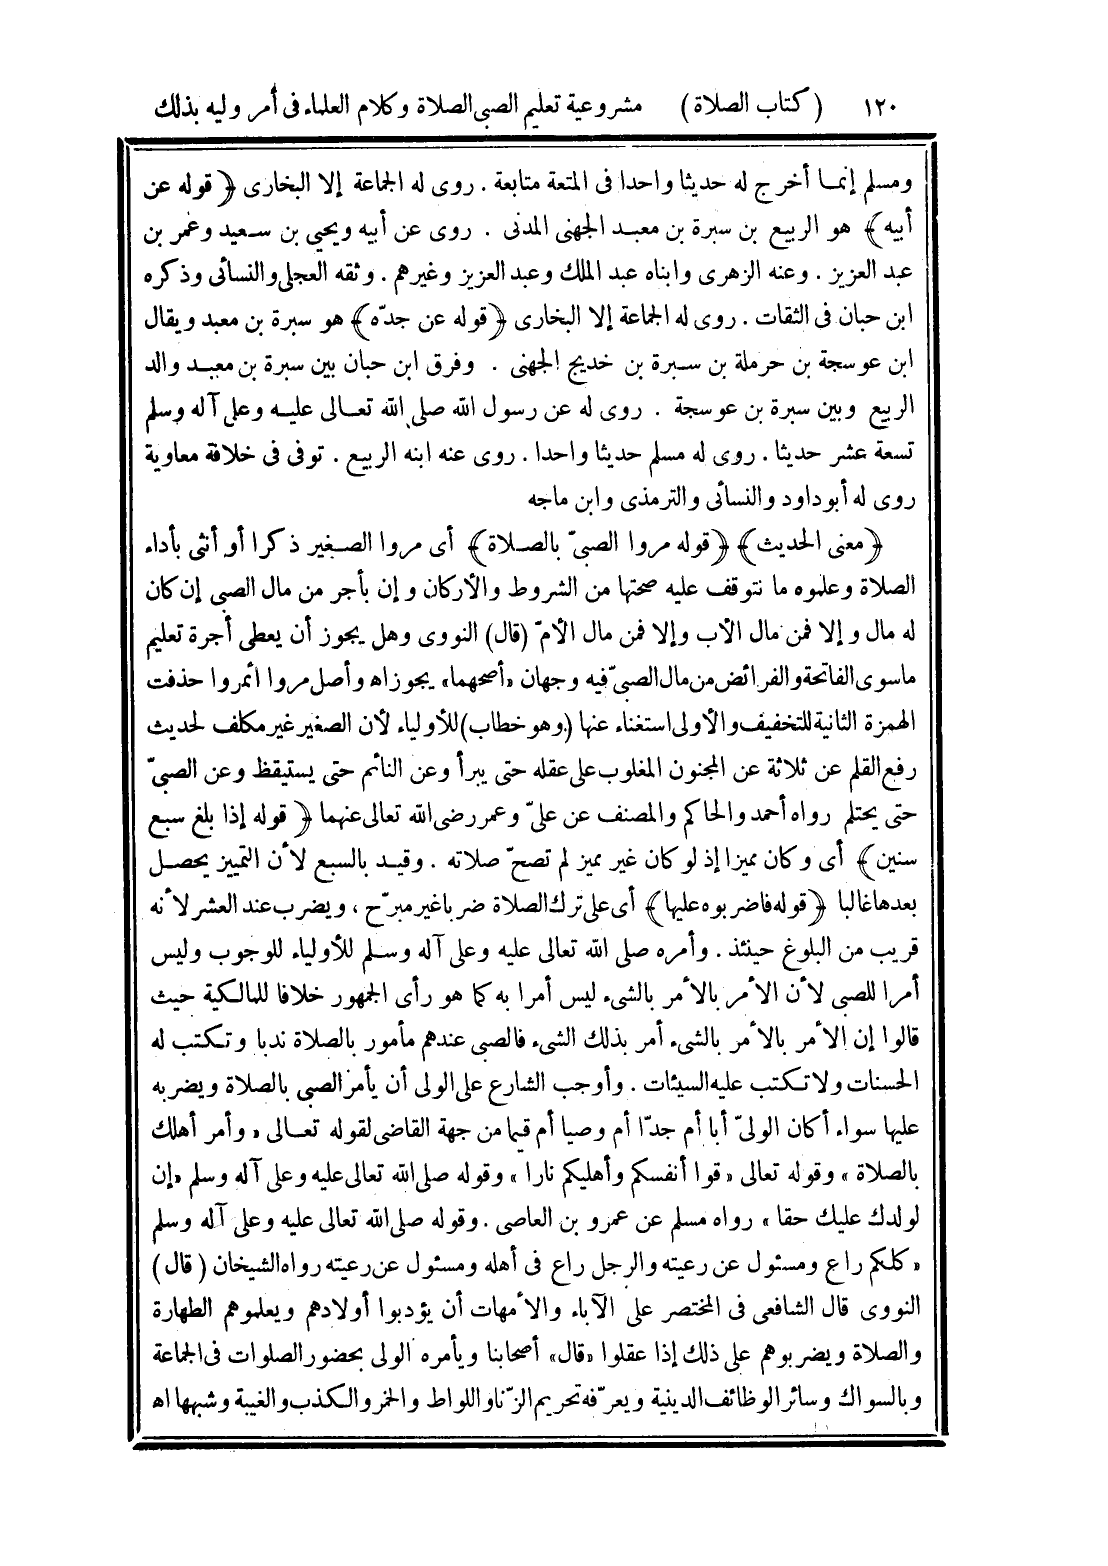 ١٢٠ (كتاب الصلاة) مشروعية تعليم الصبى الصلاة وكلام العلماء فى أمر وليه بذلك
ومسلم إنما أخرج له حديثا واحدا فى المتعة متابعة . روى له الجماعة إلا البخارى ﴿ قوله عن
أبيه﴾ هو الربيع بن سبرة بن معبد الجهنى المدنى . روى عن أبيه ويحيى بن سعيد وعمر بن
عبد العزيز . وعنه الزهرى وابناه عبد الملك وعبد العزيز وغيرهم . وثقه العجلى والنسائى وذكره
ابن حبان فى الثقات . روى له الجماعة إلا البخارى ﴿قوله عن جدّه﴾ هو سبرة بن معبد ويقال
ابن عوسجة بن حرملة بن سبرة بن خديج الجهنى . وفرق ابن حبان بين سبرة بن معبد والد
الربيع وبين سبرة بن عوسجة . روى له عن رسول الله صلى الله تعالى عليه وعلى آله وسلم
تسعة عشر حديثا . روى له مسلم حديثا واحدا . روى عنه ابنه الربيع . توفى فى خلافة معاوية
روى له أبوداود والنسائى والترمذى وابن ماجه
﴿معنى الحديث﴾ ﴿قوله مروا الصبىّ بالصلاة﴾ أى مروا الصغير ذكرا أو أنثى بأداء
الصلاة وعلموه ما تتوقف عليه صحتها من الشروط والأركان وإن بأجر من مال الصبى إن كان
له مال وإلا فمن مال الأب وإلا فمن مال الأمّ (قال) النووى وهل يجوز أن يعطى أجرة تعليم
ماسوى الفاتحة والفرائض من مال الصبىّ فيه وجهان «أصحهما» يجوز اه وأصل مروا ائمروا حذفت
الهمزة الثانية للتخفيف والأولى استغناء عنها (وهو خطاب) للأولياء لأن الصغير غير مكلف لحديث
رفع القلم عن ثلاثة عن المجنون المغلوب على عقله حتى يبرأ وعن النائم حتى يستيقظ وعن الصبىّ
حتى يحتلم رواه أحمد والحاكم والمصنف عن علىّ وعمر رضى الله تعالى عنهما ﴿ قوله إذا بلغ سبع
سنين﴾ أى وكان مميزا إذ لو كان غير مميز لم تصحّ صلاته . وقيد بالسبع لأن التمييز يحصل
بعدها غالبا ﴿قوله فاضربوه عليها﴾ أى على ترك الصلاة ضربا غير مبرّح ، ويضرب عند العشر لأنه
قريب من البلوغ حينئذ . وأمره صلى الله تعالى عليه وعلى آله وسلم للأولياء للوجوب وليس
أمرا للصبى لأن الأمر بالأمر بالشىء ليس أمرا به كما هو رأى الجمهور خلافا للمالكية حيث
قالوا إن الأمر بالأمر بالشىء أمر بذلك الشىء فالصبى عندهم مأمور بالصلاة ندبا وتكتب له
الحسنات ولا تكتب عليه السيئات . وأوجب الشارع على الولى أن يأمر الصبى بالصلاة ويضربه
عليها سواء أكان الولىّ أبا أم جدّا أم وصيا أم قيما من جهة القاضى لقوله تعالى «وأمر أهلك
بالصلاة» وقوله تعالى «قوا أنفسكم وأهليكم نارا» وقوله صلى الله تعالى عليه وعلى آله وسلم «إن
لولدك عليك حقا» رواه مسلم عن عمرو بن العاصى . وقوله صلى الله تعالى عليه وعلى آله وسلم
«كلكم راع ومسئول عن رعيته والرجل راع فى أهله ومسئول عن رعيته رواه الشيخان (قال)
النووى قال الشافعى فى المختصر على الآباء والأمهات أن يؤدبوا أولادهم ويعلموهم الطهارة
والصلاة ويضربوهم على ذلك إذا عقلوا «قال» أصحابنا ويأمره الولى بحضور الصلوات فى الجماعة
وبالسواك وسائر الوظائف الدينية ويعرّفه تحريم الزنا واللواط والخمر والكذب والغيبة وشبهها اه